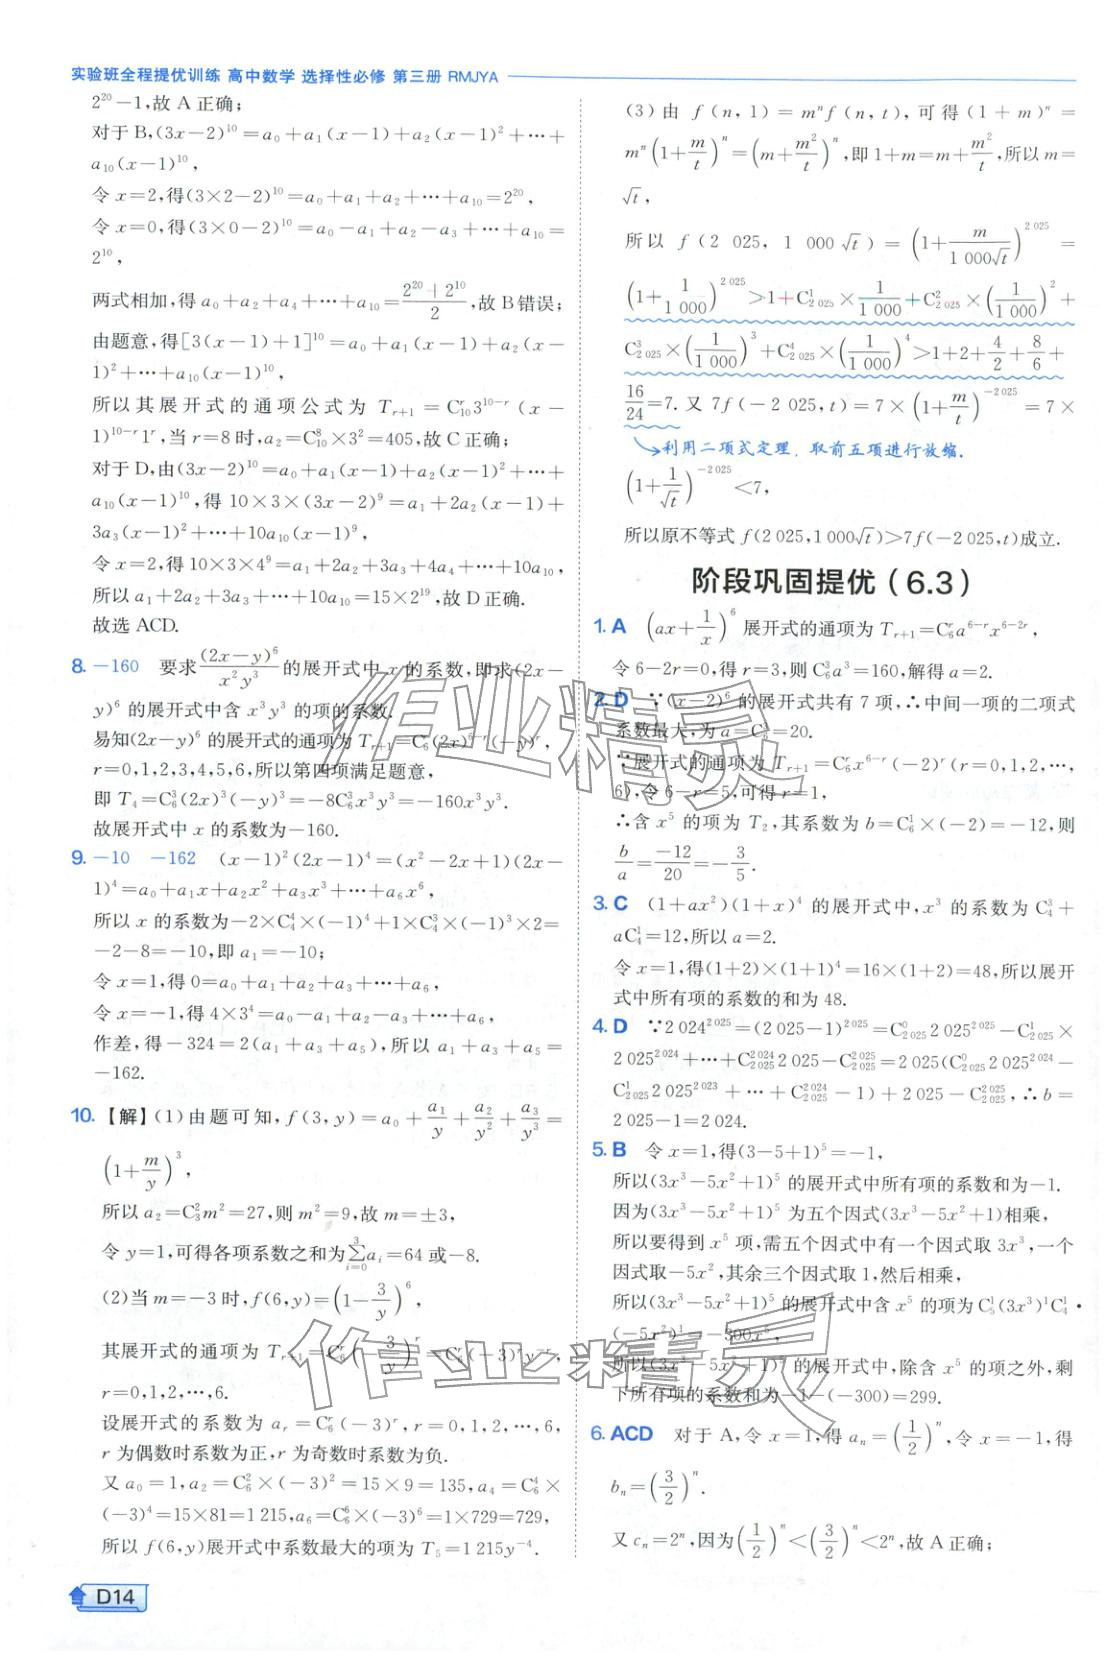 实验班全程提优训练 高中数学 选择性必修 第三册 RMJYA
2²⁰－1,故 A 正确;
对于 B,(3x－2)¹⁰＝a₀＋a₁(x－1)＋a₂(x－1)²＋…＋
a₁₀(x－1)¹⁰,
令 x＝2,得(3×2－2)¹⁰＝a₀＋a₁＋a₂＋…＋a₁₀＝2²⁰,
令 x＝0,得(3×0－2)¹⁰＝a₀－a₁＋a₂－a₃＋…＋a₁₀＝
2¹⁰,
两式相加,得 a₀＋a₂＋a₄＋…＋a₁₀＝(2²⁰＋2¹⁰)/2,故 B 错误;
由题意,得[3(x－1)＋1]¹⁰＝a₀＋a₁(x－1)＋a₂(x－
1)²＋…＋a₁₀(x－1)¹⁰,
所以其展开式的通项公式为 Tᵣ₊₁＝C₁₀ʳ3¹⁰⁻ʳ(x－
1)¹⁰⁻ʳ1ʳ,当 r＝8 时,a₂＝C₁₀⁸×3²＝405,故 C 正确;
对于 D,由(3x－2)¹⁰＝a₀＋a₁(x－1)＋a₂(x－1)²＋…＋
a₁₀(x－1)¹⁰,得 10×3×(3x－2)⁹＝a₁＋2a₂(x－1)＋
3a₃(x－1)²＋…＋10a₁₀(x－1)⁹,
令 x＝2,得 10×3×4⁹＝a₁＋2a₂＋3a₃＋…＋10a₁₀,
所以 a₁＋2a₂＋3a₃＋…＋10a₁₀＝15×2¹⁹,故 D 正确.
故选 ACD.
8. －160 要求(2x－y)⁶/(x²y³)的展开式中 x 的系数,即求(2x－
y)⁶ 的展开式中含 x³y³ 的项的系数.
易知(2x－y)⁶ 的展开式的通项为 Tᵣ₊₁＝C₆ʳ(2x)⁶⁻ʳ(－y)ʳ,
r＝0,1,2,3,4,5,6,所以第四项满足题意,
即 T₄＝C₆³(2x)³(－y)³＝－8C₆³x³y³＝－160x³y³.
故展开式中 x 的系数为－160.
9. －10 －162 (x－1)²(2x－1)⁴＝(x²－2x＋1)(2x－
1)⁴＝a₀＋a₁x＋a₂x²＋a₃x³＋…＋a₆x⁶,
所以 x 的系数为－2×C₄⁴×(－1)⁴＋1×C₄³×(－1)³×2＝
－2－8＝－10,即 a₁＝－10;
令 x＝1,得 0＝a₀＋a₁＋a₂＋a₃＋…＋a₆,
令 x＝－1,得 4×3⁴＝a₀－a₁＋a₂－a₃＋…＋a₆,
作差,得－324＝2(a₁＋a₃＋a₅),所以 a₁＋a₃＋a₅＝
－162.
10. 【解】(1)由题可知,f(3,y)＝a₀＋a₁/y＋a₂/y²＋a₃/y³＝
(1＋m/y)³,
所以 a₂＝C₃²m²＝27,则 m²＝9,故 m＝±3,
令 y＝1,可得各项系数之和为∑³ᵢ₌₀aᵢ＝64 或－8.
(2)当 m＝－3 时,f(6,y)＝(1－3/y)⁶,
其展开式的通项为 Tᵣ₊₁＝C₆ʳ(－3/y)ʳ＝C₆ʳ(－3)ʳy⁻ʳ,
r＝0,1,2,…,6.
设展开式的系数为 aᵣ＝C₆ʳ(－3)ʳ,r＝0,1,2,…,6,
r 为偶数时系数为正,r 为奇数时系数为负.
又 a₀＝1,a₂＝C₆²×(－3)²＝15×9＝135,a₄＝C₆⁴×
(－3)⁴＝15×81＝1 215,a₆＝C₆⁶×(－3)⁶＝1×729＝729,
所以 f(6,y)展开式中系数最大的项为 T₅＝1 215y⁻⁴.
D14
(3)由 f(n,1)＝mⁿf(n,t),可得(1＋m)ⁿ＝
mⁿ(1＋m/t)ⁿ＝(m＋m²/t)ⁿ,即 1＋m＝m＋m²/t,所以 m＝
√t,
所以 f(2 025,1 000√t)＝(1＋m/(1 000√t))²⁰²⁵＝
(1＋1/1 000)²⁰²⁵＞1＋C¹₂₀₂₅×1/1 000＋C²₂₀₂₅×(1/1 000)²＋
C³₂₀₂₅×(1/1 000)³＋C⁴₂₀₂₅×(1/1 000)⁴＞1＋2＋4/2＋8/6＋
16/24＝7.又 7f(－2 025,t)＝7×(1＋m/t)⁻²⁰²⁵＝7×
利用二项式定理,取前五项进行放缩.
(1＋1/√t)⁻²⁰²⁵＜7,
所以原不等式 f(2 025,1 000√t)＞7f(－2 025,t)成立.
阶段巩固提优(6.3)
1. A (ax＋1/x)⁶展开式的通项为 Tᵣ₊₁＝C₆ʳa⁶⁻ʳx⁶⁻²ʳ,
令 6－2r＝0,得 r＝3,则 C₆³a³＝160,解得 a＝2.
2. D ∵(x－2)⁶ 的展开式共有 7 项,∴中间一项的二项式
系数最大,为 a＝C₆³＝20.
∵展开式的通项为 Tᵣ₊₁＝C₆ʳx⁶⁻ʳ(－2)ʳ(r＝0,1,2,…,
6),令 6－r＝5,可得 r＝1,
∴含 x⁵ 的项为 T₂,其系数为 b＝C₆¹×(－2)＝－12,则
b/a＝－12/20＝－3/5.
3. C (1＋ax²)(1＋x)⁴ 的展开式中,x³ 的系数为 C₄³＋
aC₄¹＝12,所以 a＝2.
令 x＝1,得(1＋2)×(1＋1)⁴＝16×(1＋2)＝48,所以展开
式中所有项的系数的和为 48.
4. D ∵2 024²⁰²⁵＝(2 025－1)²⁰²⁵＝C⁰₂₀₂₅2 025²⁰²⁵－C¹₂₀₂₅×
2 025²⁰²⁴＋…＋C²⁰²⁴₂₀₂₅2 025－C²⁰²⁵₂₀₂₅＝2 025(C⁰₂₀₂₅2 025²⁰²⁴－
C¹₂₀₂₅2 025²⁰²³＋…＋C²⁰²⁴₂₀₂₅－1)＋2 025－C²⁰²⁵₂₀₂₅,∴b＝
2 025－1＝2 024.
5. B 令 x＝1,得(3－5＋1)⁵＝－1,
所以(3x³－5x²＋1)⁵ 的展开式中所有项的系数和为－1.
因为(3x³－5x²＋1)⁵ 为五个因式(3x³－5x²＋1)相乘,
所以要得到 x⁵ 项,需五个因式中有一个因式取 3x³,一个
因式取－5x²,其余三个因式取 1,然后相乘,
所以(3x³－5x²＋1)⁵ 的展开式中含 x⁵ 的项为 C₅¹(3x³)¹C₄¹·
(－5x²)¹＝－300x⁵,
所以(3x³－5x²＋1)⁵ 的展开式中,除含 x⁵ 的项之外,剩
下所有项的系数和为－1－(－300)＝299.
6. ACD 对于 A,令 x＝1,得 aₙ＝(1/2)ⁿ,令 x＝－1,得
bₙ＝(3/2)ⁿ.
又 cₙ＝2ⁿ,因为(1/2)ⁿ＜(3/2)ⁿ＜2ⁿ,故 A 正确;
作业精灵
作业精灵